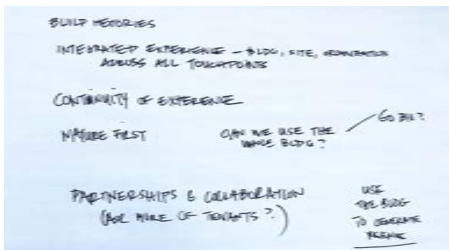 BUILD MEMORIES
INTEGRATED EXPERIENCE – BLDG, SITE,
ACROSS ALL TOUCHPOINTS
CONTINUITY OF EXPERIENCE
NATURE FIRST
CAN WE USE THE WHOLE BLDG?
GO BIG?
PARTNERSHIPS & COLLABORATION
(ASK MORE OF TENANTS?)
USE
THE BLDG
TO GENERATE